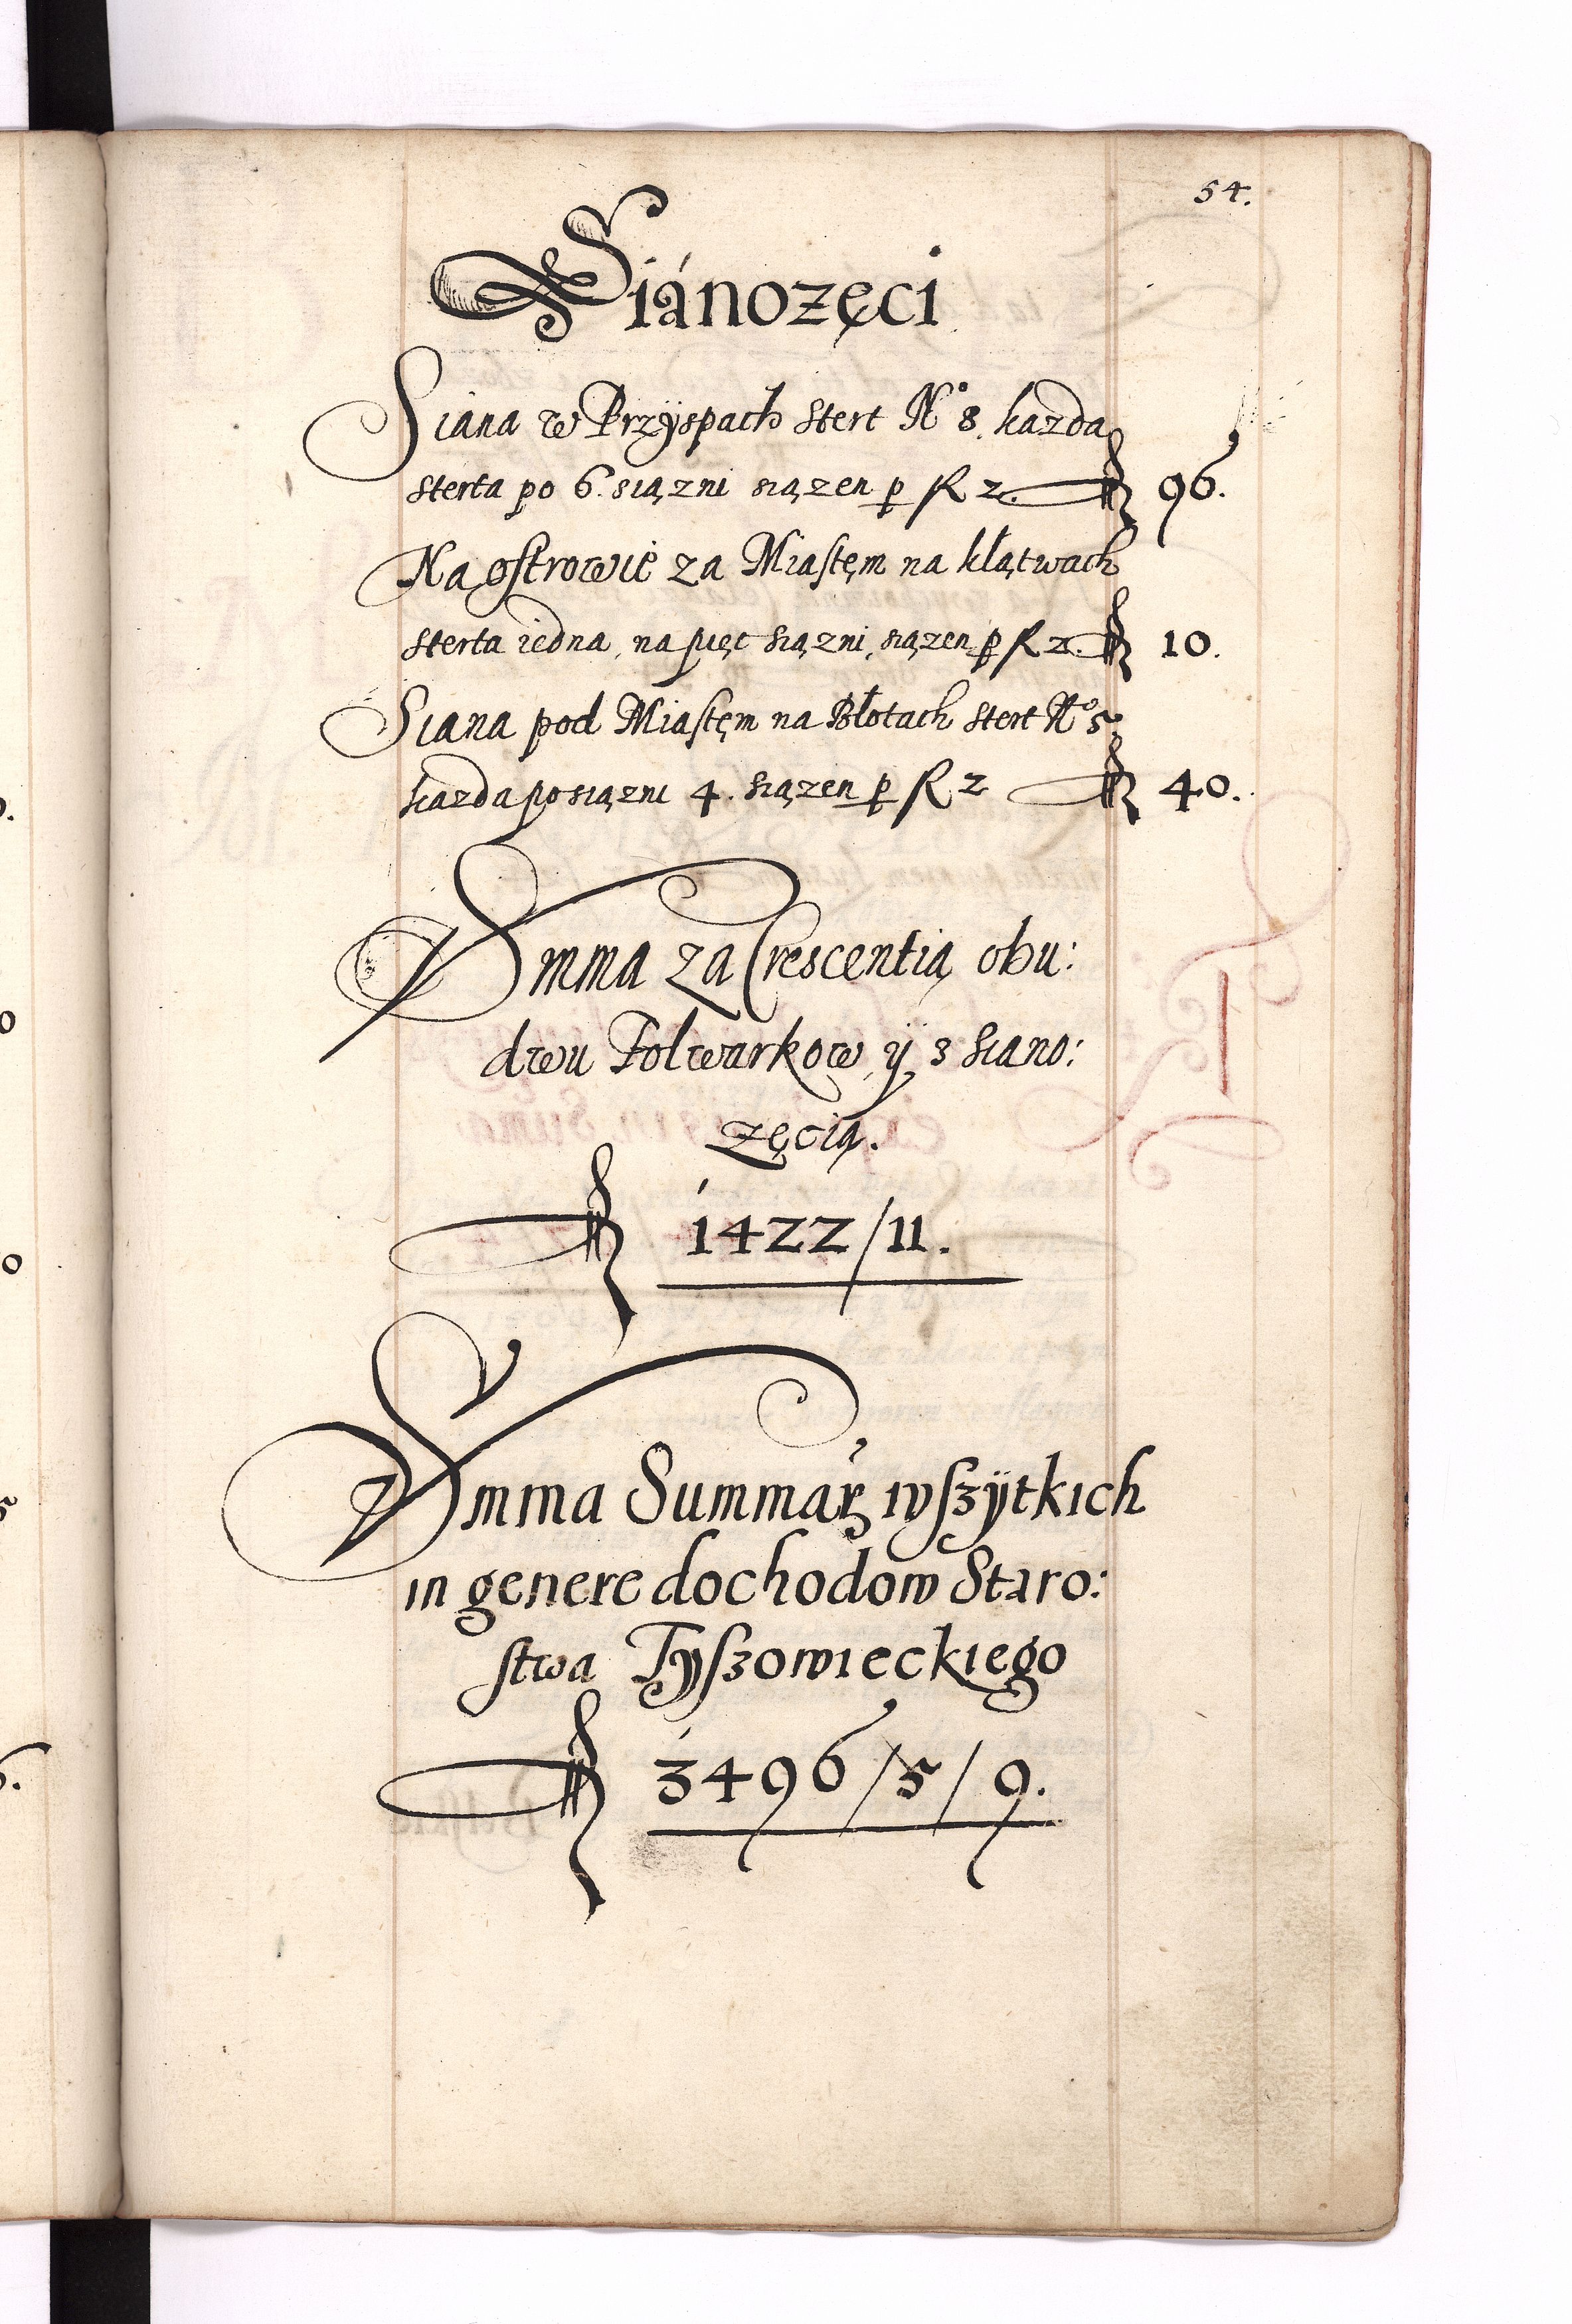 54.
Siánozęci
Siana w Przÿspach stert N° 8. kazda
sterta po 6. siązni siązen p fl 2. fl 96.
Na ostrowie za Miastęm na kłątwach
sterta iedna, na pięc siązni, siązen p fl 2. fl 10.
Siana pod Miastęm na Błotach stert N° 5.
kazda po siązni 4. siązen p fl 2 fl 40.
Summa za Crescentią obu:
dwu Folwarkow ÿ z siano:
zęcią.
fl 1422/11.
Summa Summar wszÿtkich
in genere dochodow Staro:
stwa Tyszowieckiego
fl 3496/5/9.